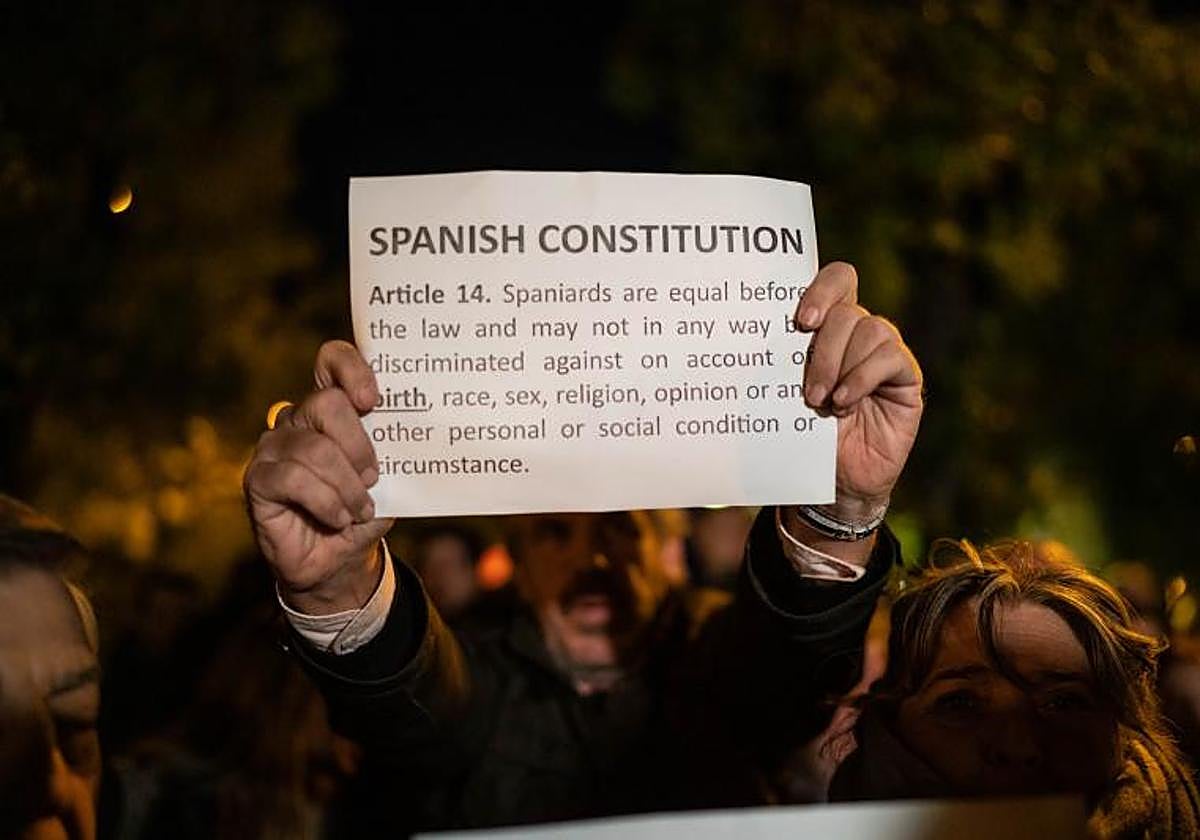 SPANISH CONSTITUTION
Article 14. Spaniards are equal before
the law and may not in any way b
discriminated against on account of
birth, race, sex, religion, opinion or an
other personal or social condition or
circumstance.